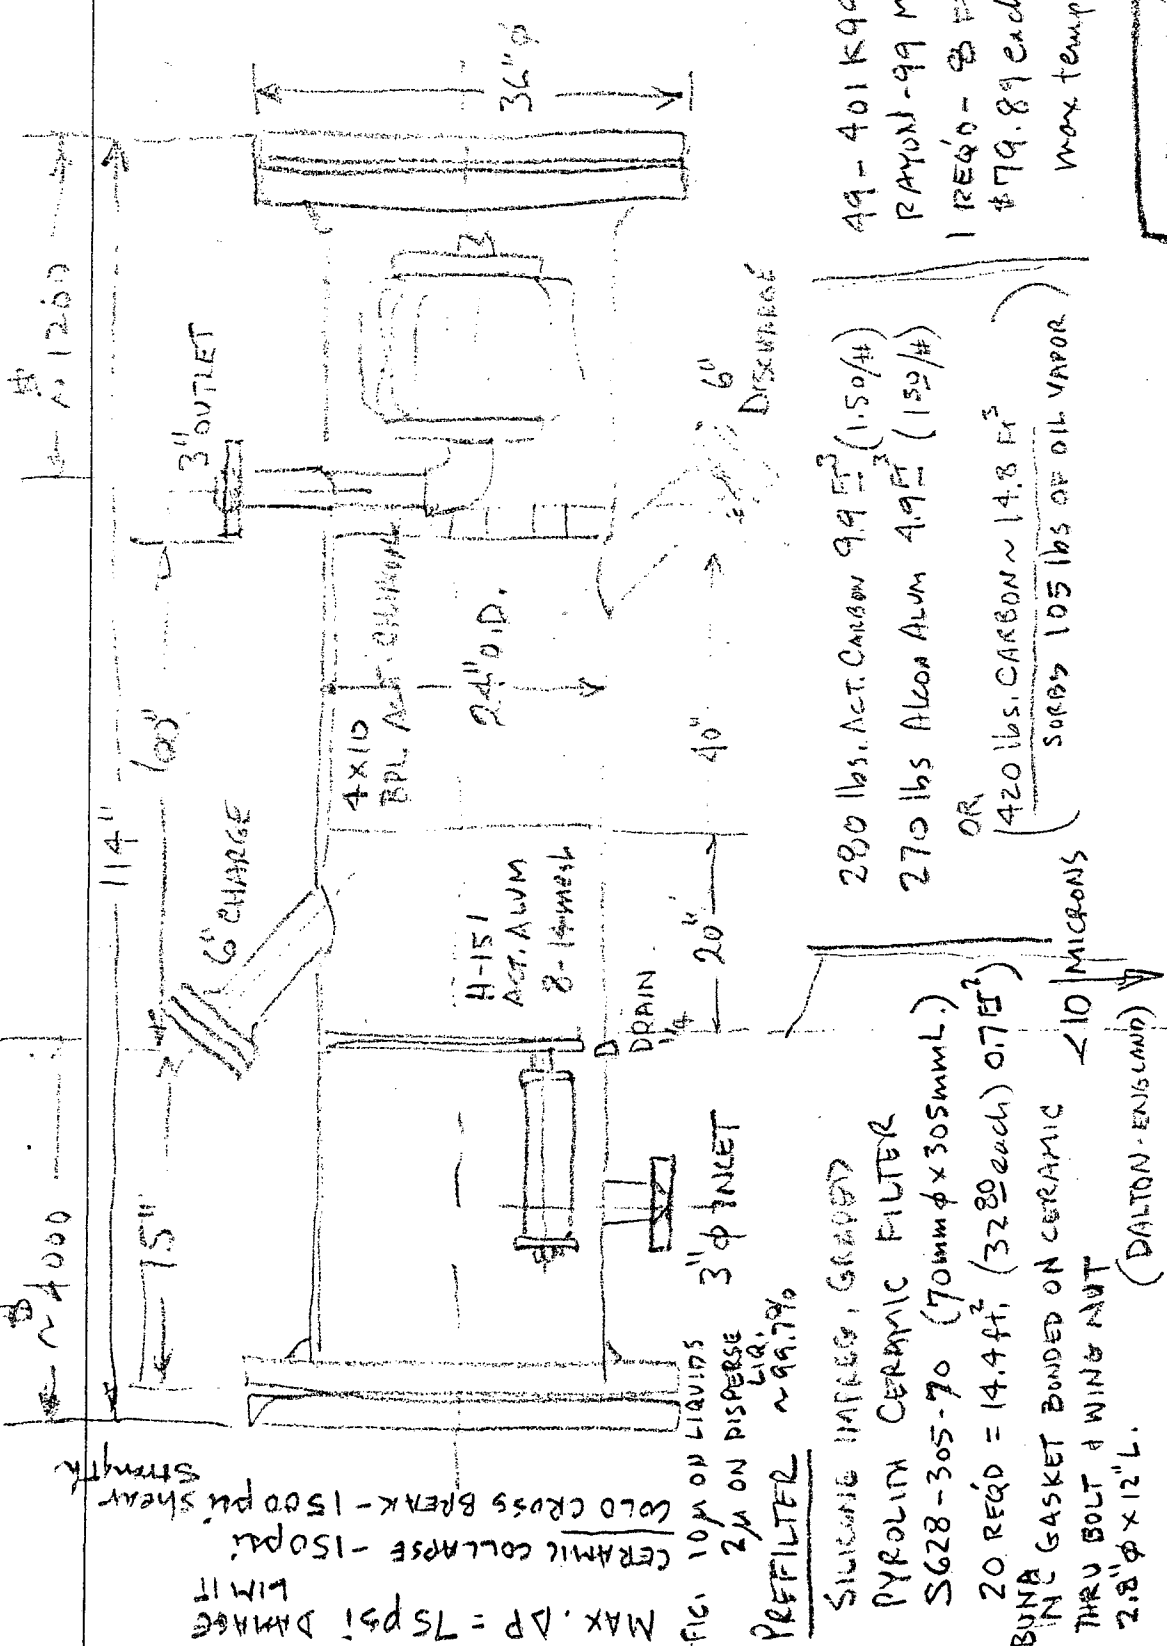 # ~ 4000
# ~ 1200
114"
75"
60"
6" CHARGE
3" OUTLET
36" ø
H-151
ACT. ALUM
8-14 mesh
4 x 10
BPL ACT. CHAR
24" O.D.
DRAIN
20"
40"
6"
DISCHARGE
3" ø INLET
MAX. ΔP = 75 psi DAMAGE
LIMIT
CERAMIC COLLAPSE - 150 psi
COLD CROSS BREAK - 1500 psi shear
strength
FIG. 10 μ ON LIQUIDS
2 μ ON DISPERSE
LIQ.
PREFILTER ~ 99.7%
SILICONE IMPREG. GRADED
PYROLITH CERAMIC FILTER
S628-305-70 (70mm ø x 305mm L.)
20 REQ'D = 14.4 ft.² (32 80 each) 0.7 FT²
BUNA
N GASKET BONDED ON CERAMIC < 10 MICRONS
THRU BOLT & WING NUT
2.8" ø x 12" L. (DALTON-ENGLAND)
280 lbs. ACT. CARBON 9.9 FT³ (1.50/#)
270 lbs ALCOA ALUM 4.9 FT³ (1 50/#)
OR
(420 lbs. CARBON ~ 14.8 FT³)
(SORBS 105 lbs OF OIL VAPOR)
49 - 401 K99
RAYON - 99 M
1 REQ'D - 8
$79.89 each
max temp